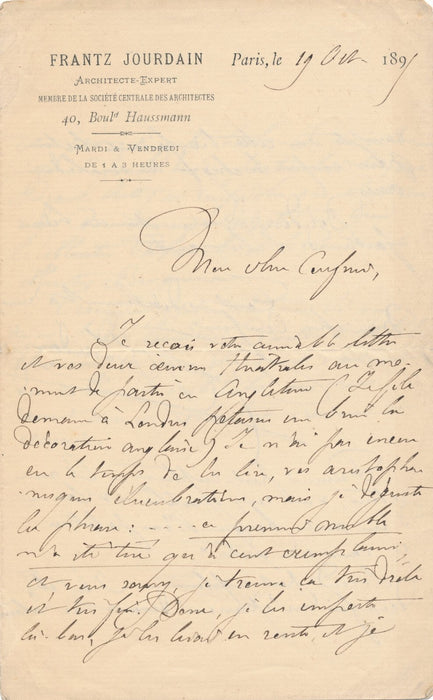 FRANTZ JOURDAIN
ARCHITECTE-EXPERT
MEMBRE DE LA SOCIÉTÉ CENTRALE DES ARCHITECTES
40, Boul<sup>d</sup> Haussmann
MARDI & VENDREDI
DE 1 A 3 HEURES
Paris, le 19 Oct 1895
Mon cher Confrère,
Je reçois votre aimable lettre
et vos deux œuvres théâtrales au mo-
ment de partir en Angleterre (Je file
demain à Londres sur la
décoration anglaise) Je n'ai pas encore
eu le temps de les lire, vos aristopha-
nesques élucubrations, mais je déguste
la phrase : ..... ce premier mille
n'a été tiré qu'à cent exemplaires,
et vous savez, je trouve ça très drôle
et très fin. Donc, je les emporte
là-bas, je les lirai en route, et je